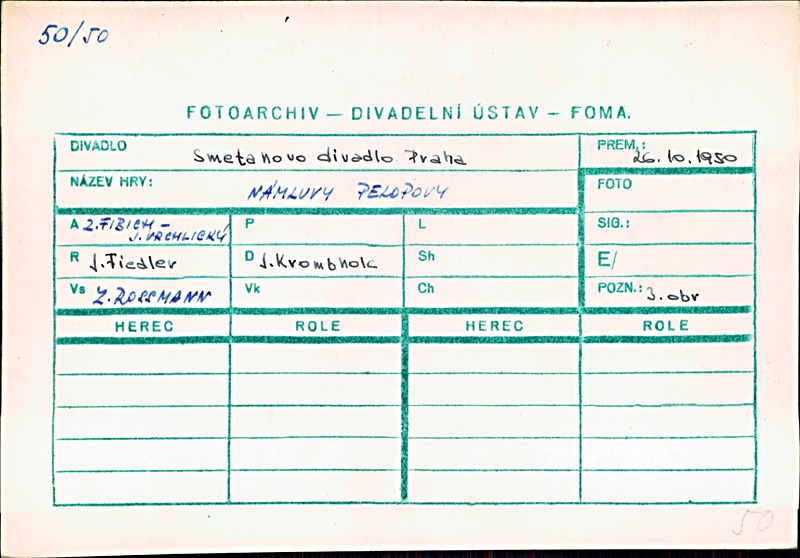 50/50
FOTOARCHIV — DIVADELNÍ ÚSTAV — FOMA.
DIVADLO Smetanovo divadlo Praha
PREM.: 26.10.1950
NÁZEV HRY: NÁMLUVY PELOPOVY
FOTO
A Z.FIBICH – J.VRCHLICKÝ
P
L
SIG.:
R J.Fiedler
D J.Krombholc
Sh
E/
Vs Z.ROSSMANN
Vk
Ch
POZN.: 3.obr
HEREC ROLE HEREC ROLE
50